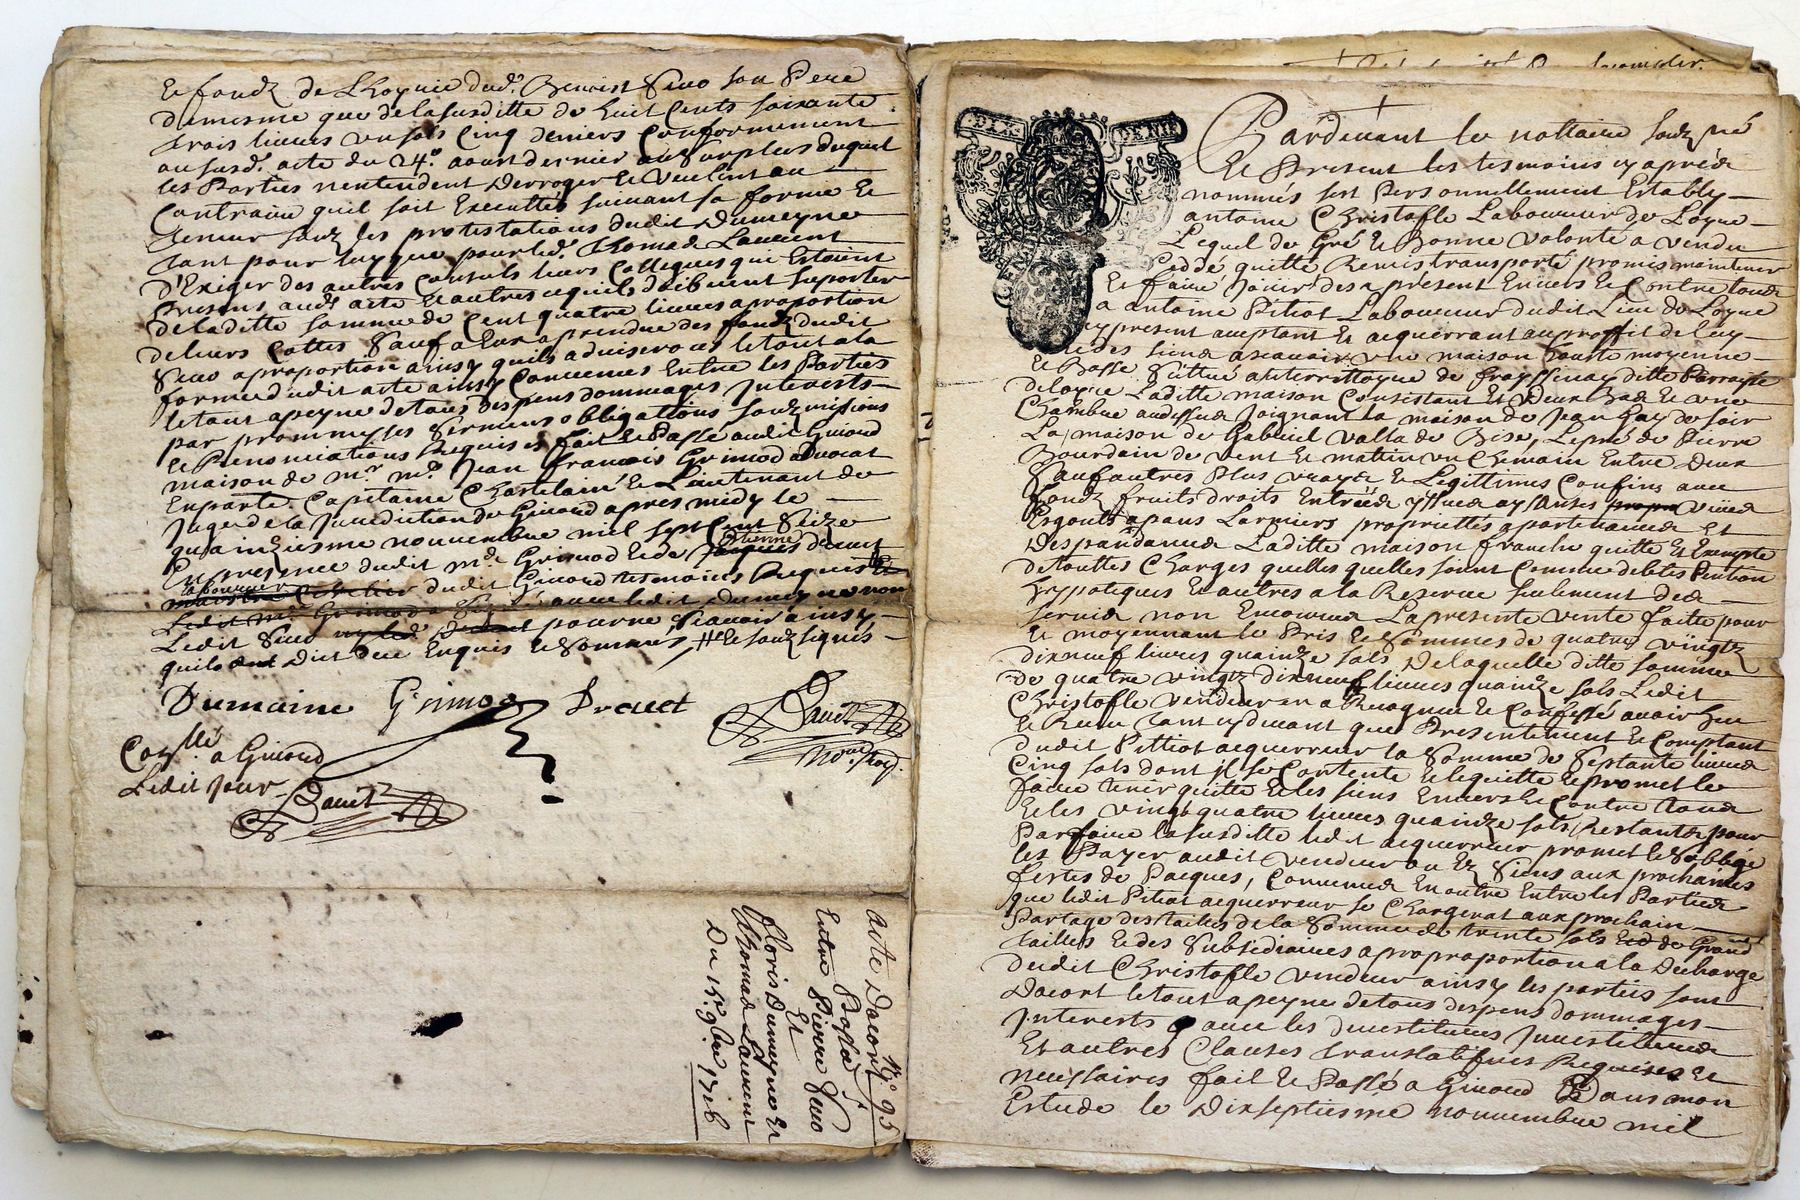 et fondz de L'hoyrie dud.t Benoist Sivo son Pere
demesme que delasusditte de huit Cents soixante
trois livres un sols Cinq deniers Conformement
au susd.t acte du 24.e aoust dernier au Surplus duquel
les Parties nentendent Derroger et veulent au
Contraire quil soit Executtés suivant sa forme Et
teneur souz les protestations dudit Dumeyne
tant pour luy que pour led.t Thomas Laurent
D'Exiger des autres Consuls leurs Collegues que Estoient
Presens aud.t acte Et autres cequils doibvent suporter
de laditte somme de Cent quatre livres a proportion
de leurs Cottes Sauf a Eux a prendre des fondz dudit
Sivo a proportion ainsy quils adviseront le tout a la
forme dudit acte ainsy Convenues Entre les Parties
le tout apeyne de tous Despens dommages Interests
par prommesses Sermens obligations soubmissions
et Renonciations Requises fait et Passé audit Giraud
maison de m.r m.e Jean françois Grimod advocat
En parle. Capitaine Chastelain et Lieutenant de
Juge de la Jurediction de Giraud apres midy le
quainziesme nouvembre mil sept Cent Seize
Etienne
En presence dudit m.e Grimod et de Jacques drevet
laboureur
dudit Giraud tesmoins Requis
avec ledit Dumeyne non
Ledit Sivo pour ne Scavoir ainsy
quils Dict de ce Enquis et Sommés, et souz signés
Dumaine Grimod Drevet Bauit
No.re Roy.
Con.llé a Giraud
Ledit Jour
Bauit
N.o 95
acte Dacort
Passé
Entre Pierre Sivo
Et
floris Dumeyne Et
Thomas Laurent
Du 15.e 9.bre 1716
DIX DENIE
Pardevant le nottaire souz.né
Et Present les tesmoins cy aprés
nommés est Personnellement Establÿ
antoine Christofle Laboureur de Loyre
Lequel de Gré Et Bonne volonté a vendu
Ceddé, quitté, Remis transporté promis maintenir
Et faire Jouir des a présent Envers Et Contre tous
a antoine Pitiot Laboureur dudit Lieu de Loyre
cy present aceptant Et acquerrant au proffit de luy
et des siens ascavoir une maison haute moyenne
Et Basse Sittué au territtoyre de frayssinay ditte Parroisse
de Loyre Laditte maison Consistant Et Deux Bas Et une
Chambre audessus Joignant la maison de Jean Gay de soir
La maison de Gabriel valla de Bise, Le pré de Pierre
Bourdain de vent Et matin un Chemain Entre deux
Sauf autres Plus vrays Et Legittimes Confins avec
fondz fruits droits Entrées yssues aysances propre vuies
Esgouts apans Larmiers propriettés apartenances Et
Despandances Laditte maison franche quitte Et Exempte
de touttes Charges quelles quelles soient Comme debtes Pention
hyppotiques Et autres a la Reserve seulement des
servis non Encourus La presente vente faitte pour
Et moyennant le Pris Et Sommes de quatre vingtz
dix neuf livres quainze sols De laquelle ditte somme
De quatre vingtz dix neuf livres quainze sols Ledit
Christofle vendeur en a Recognu Et Confessé avoir heu
Et Receu tant cy devant que Presentement Et Comptant
dudit Pittiot acquerreur la Somme de Septante livres
Cinq sols dont jl se Contente Et le quitte Et promet le
faire tenir quitte Et les siens Envers Et Contre tous
Et les vingt quatre livres quainze sols Restants pour
Parfaire la susditte ledit acquerreur promet Et S'obblige
les Payer audit vendeur ou Ez Siens aux prochaines
festes de Pacques, Convenus En outre Entre les Parties
que ledit Pitiot acquerreur se Chargerat aux prochain
Partage des tailles de la Somme de trente sols de Grand
tailles Et des Subsidiaires a proproportion a la Decharge
dudit Christofle vendeur ainsy les parties sont
Dacort le tout apeyne de tous despens dommages
Interests avec les devestitures Jnvestitures
Et autres Clauses translatifves Requises Et
necessaires fait Et Passé a Giraud Dans mon
Estude le Dixseptiesme nouvembre mil